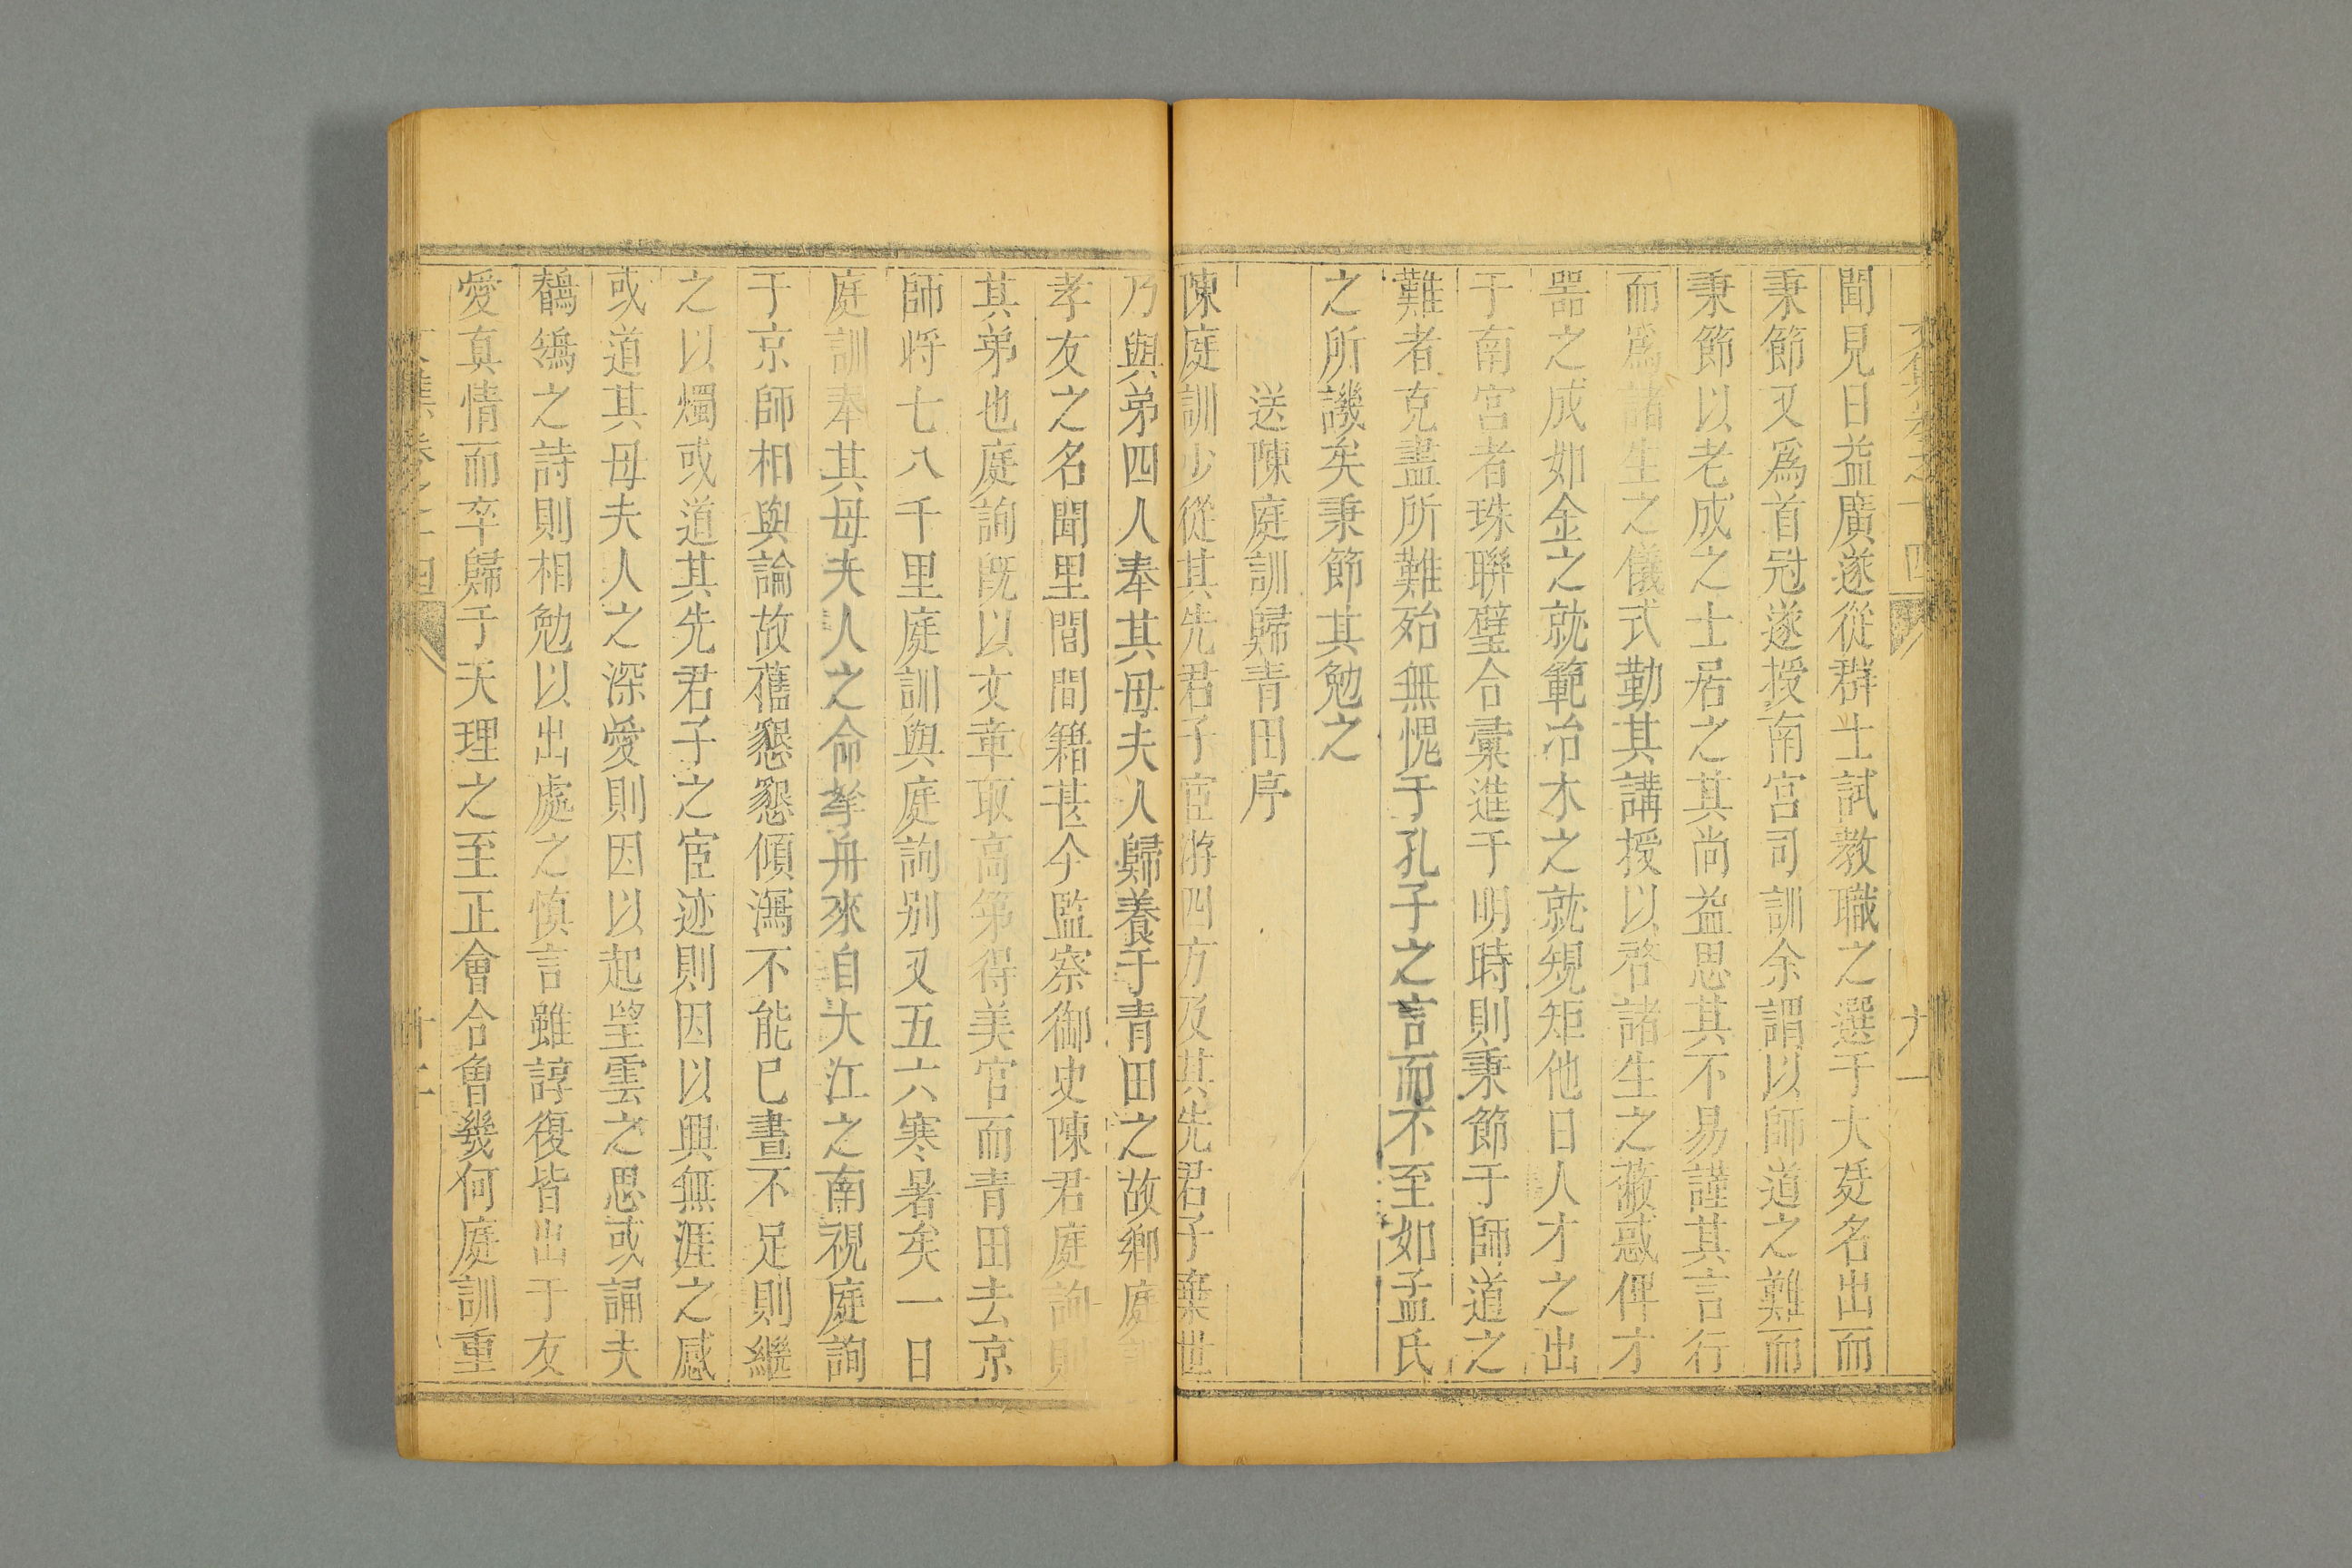 聞見日益廣遂從群士試教職之選于大廷名出而
秉節又爲首冠遂授南宮司訓余謂以師道之難而
秉節以老成之士居之其尚益思其不易謹其言行
而爲諸生之儀式勤其講授以啓諸生之蔽惑俾才
器之成如金之就範冶木之就規矩他日人才之出
于南宮者珠聯璧合彙進于明時則秉節于師道之
難者克盡所難殆無愧于孔子之言而不至如孟氏
之所譏矣秉節其勉之
送陳庭訓歸青田序
陳庭訓少從其先君子宦游四方及其先君子棄世
乃與弟四人奉其母夫人歸養于青田之故鄉庭訓
孝友之名聞里閭間籍甚今監察御史陳君庭詢則
其弟也庭詢旣以文章取高第得美官而青田去京
師將七八千里庭訓與庭詢別又五六寒暑矣一日
庭訓奉其母夫人之命拏舟來自大江之南視庭詢
于京師相與論故舊懇懇傾瀉不能已晝不足則繼
之以燭或道其先君子之宦迹則因以興無涯之感
或道其母夫人之深愛則因以起望雲之思或誦夫
鶺鴒之詩則相勉以出處之慎言雖諄復皆出于友
愛真情而卒歸于天理之至正會合曾幾何庭訓重